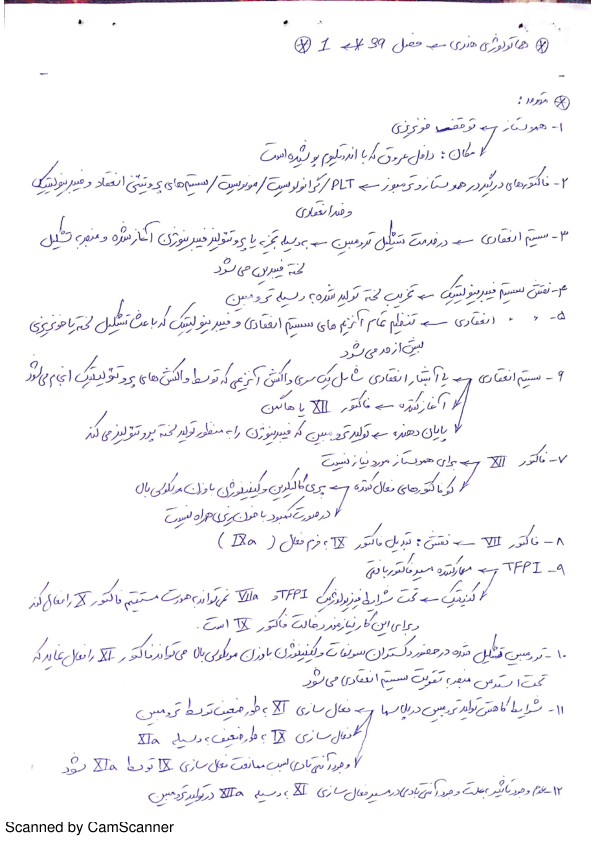 ⊛ هماتولوژی هنری ← فصل 39 ← 1 ⊛
⊛ مقدمه :
1- هموستاز ← توقف خونریزی
مکان : داخل عروق که با اندوتلیوم پوشیده است
2- فاکتورهای درگیر در هموستاز و ترمبوز ← PLT / گرانولوسیت / مونوسیت / سیستم های پروتئینی انعقاد و فیبرینولیتیک
و ضد انعقادی
3- سیستم انعقادی ← در خدمت تشکیل ترومبین ← بوسیله تجزیه یا پروتئولیز فیبرینوژن آغاز شده و منجر به تشکیل
لخته فیبرین می شود
4- نقش سیستم فیبرینولیتیک ← تخریب لخته تولید شده بوسیله ترومبین
5- " " انعقادی ← تنظیم تمام آنزیم های سیستم انعقادی و فیبرینولیتیک که باعث تشکیل لخته یا خونریزی
بیش از حد می شود
6- سیستم انعقادی ← یا آبشار انعقادی شامل یک سری واکنش آنزیمی که توسط واکنش های پروتئولیتیک انجام می شود
آغاز کننده ← فاکتور XII یا هاگمن
پایان دهنده ← تولید ترومبین که فیبرینوژن را به منظور تولید لخته پروتئولیز می کند
7- فاکتور XII ← برای هموستاز مورد نیاز نیست
کوفاکتورهای فعال کننده ← پری کالیکرین و کینینوژن با وزن مولکولی بالا
در صورت کمبود با خون ریزی همراه نیست
8- فاکتور VII ← نقش : تبدیل فاکتور IX به فرم فعال ( IXa )
9- TFPI ← مهارکننده مسیر فاکتور بافتی
کینتیک ← تحت شرایط فیزیولوژیک TFPI و VIIa نمی تواند به صورت مستقیم فاکتور X را فعال کند
و برای این کار نیازمند دخالت فاکتور IX است.
10- ترومبین تشکیل شده در حضور دکستران سولفات و کینینوژن با وزن مولکولی بالا می تواند فاکتور XI را فعال نماید که
تحت استرس منجر به تقویت سیستم انعقادی می شود
11- شرایط کاهش تولید ترومبین در پلاسما ← فعال سازی XI به طور ضعیف توسط ترومبین
فعال سازی IX به طور ضعیف بوسیله XIa
وجود آنتی بادی سبب ممانعت فعال سازی IX توسط XIa شود
12- عدم وجود تأثیر به علت وجود آنتی بادی در مسیر فعال سازی XI بوسیله XIIa در تولید ترومبین
Scanned by CamScanner